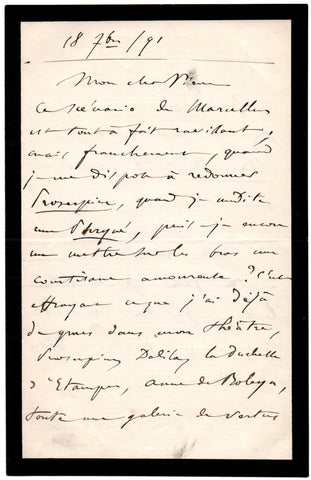 18 7bre /91
Mon cher Pierre
Ce scénario de Marcelle
est tout à fait ravissant,
mais franchement, quand
je me dispose à redonner
Proserpine, quand je médite
une Phryné, puis-je encore
me mettre sur les bras une
courtisane amoureuse ? C'est
effrayant ce que j'ai déjà
de grues dans mon théâtre,
Proserpine, Dalila, la duchesse
d'Etampes, Anne de Boleyn,
toute une galerie de vertus